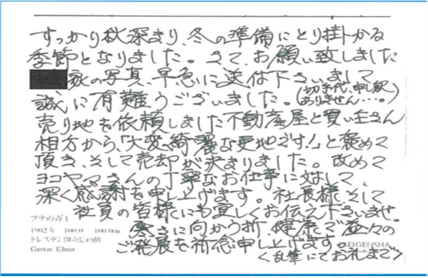 すっかり秋深まり、冬の準備にとり掛かる
季節となりました。さて、お願い致しました
家の写真、早急に送付下さいまして
誠に有難うございました。(切手代、申し訳
ありません…。)
売り地を依頼しました不動産屋と買い主さん
相方から「大変綺麗な更地です!」と褒めて
頂き、そして売却が決まりました。改めて
ヨコヤマさんの丁寧なお仕事に対して
深く感謝を申し上げます。社長様そして
社員の皆様にも宜しくお伝え下さいませ。
寒さに向かう折、健康で益々の
ご発展も祈念申し上げます。
(乱筆にてお礼まで)
ブナの森I
1902年 100.0 100.0cm
ドレスデン国立
Gustav Klimt
EIGENSHA